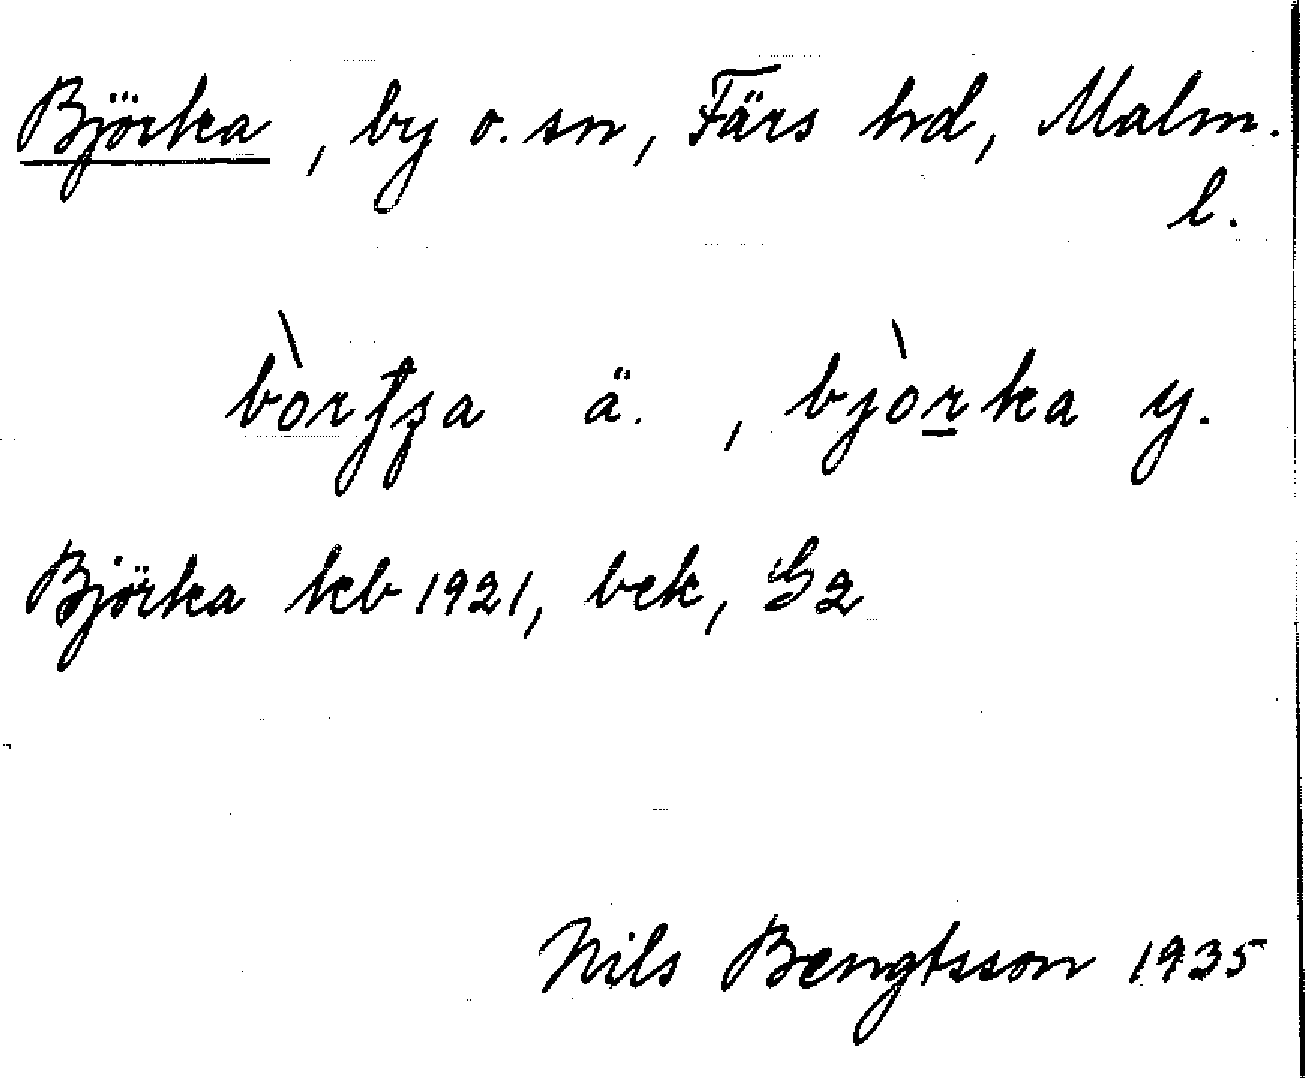 Björka, by o. sn, Färs hd, Malm.
l.
ä., bjòrka y.
Björka kb 1921, bek, G2
Nils Bengtsson 1935